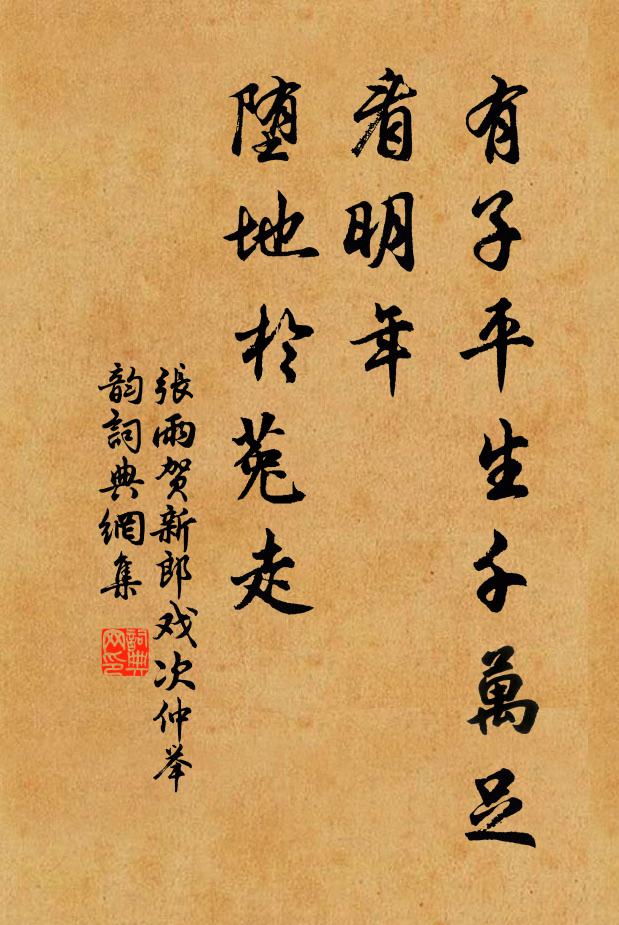 有子平生千萬足
看明年
堕地於菟走
張雨贺新郎戏次仲举
韵詞典網集
詞典网印